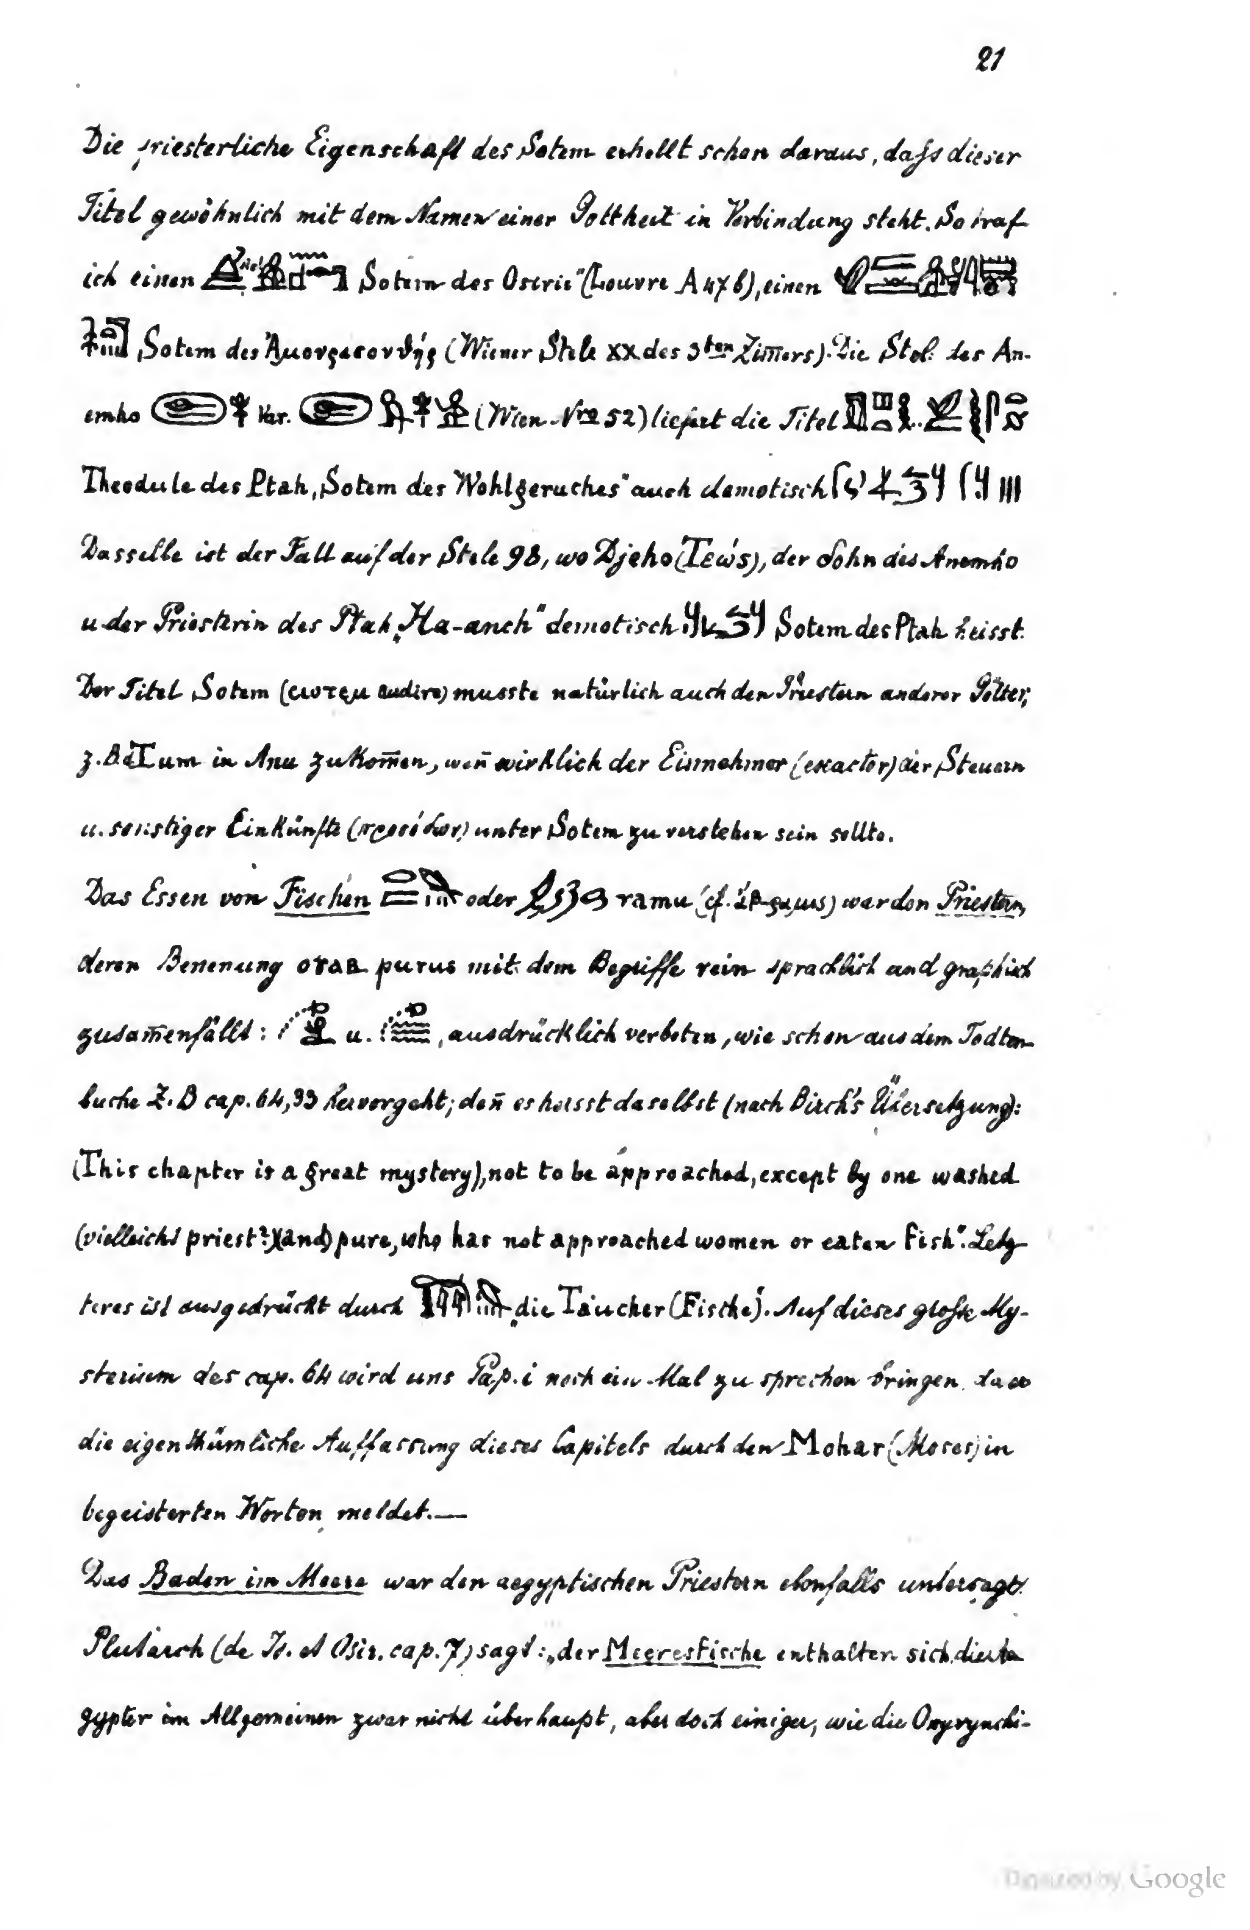 21
Die priesterliche Eigenschaft des Sotem erhellt schon daraus, dass dieser
Titel gewöhnlich mit dem Namen einer Gottheit in Verbindung steht. So traf
ich einen Sotem des Osiris" (Louvre A 47 b), einen
Sotem des (Wiener Stele XX des 3ten Zim̄ers). Die Stele des An-
emho Var. (Wien Nro 52) liefert die Titel
Theodule des Ptah, Sotem des Wohlgeruches" auch demotisch
Dasselbe ist der Fall auf der Stele 98, wo Djeho (Τεώς), der Sohn des Anemho
u. der Priesterin des Ptah „Ha-anch" demotisch Sotem des Ptah heisst.
Der Titel Sotem (ⲥⲱⲧⲉⲙ audire) musste natürlich auch den Priestern anderer Götter,
z. B. des Tum in Anu zukom̄en, wen̄ wirklich der Einnehmer (exactor) der Steuern
u. sonstiger Einkünfte unter Sotem zu verstehen sein sollte.
Das Essen von Fischen oder ramu war den Priestern,
deren Benennung ⲟⲩⲁⲃ purus mit dem Begriffe rein sprachlich und graphisch
zusam̄enfällt: u. , ausdrücklich verboten, wie schon aus dem Todten-
buche Z. B cap. 64, 33 hervorgeht; den̄ es heisst daselbst (nach Birch's Übersetzung):
(This chapter is a great mystery), not to be approached, except by one washed
(vielleicht priest?)(and) pure, who has not approached women or eaten Fish". Letz-
teres ist ausgedrückt durch „die Taucher (Fische). Auf dieses grosse My-
sterium des cap. 64 wird uns Pap. i noch ein Mal zu sprechen bringen, da er
die eigenthümliche Auffassung dieses Capitels durch den Mohar (Moses) in
begeisterten Worten meldet.—
Das Baden im Meere war den aegyptischen Priestern ebenfalls untersagt.
Plutarch (de Is. et Osir. cap. 7) sagt: „der Meeresfische enthalten sich die Ae-
gypter im Allgemeinen zwar nicht überhaupt, aber doch einiger, wie die Oxyrynchi-
Digitized by Google